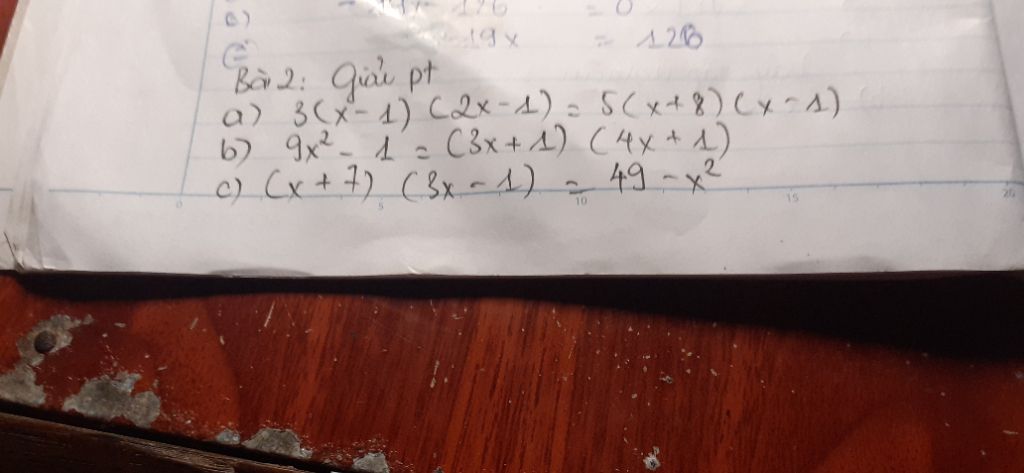 c)
19x = 126
Bài 2: Giải pt
a) 3(x-1) (2x-1) = 5(x+8) (x-1)
b) 9x² - 1 = (3x+1) (4x+1)
c) (x+7) (3x-1) = 49 - x²
0 5 10 15 20